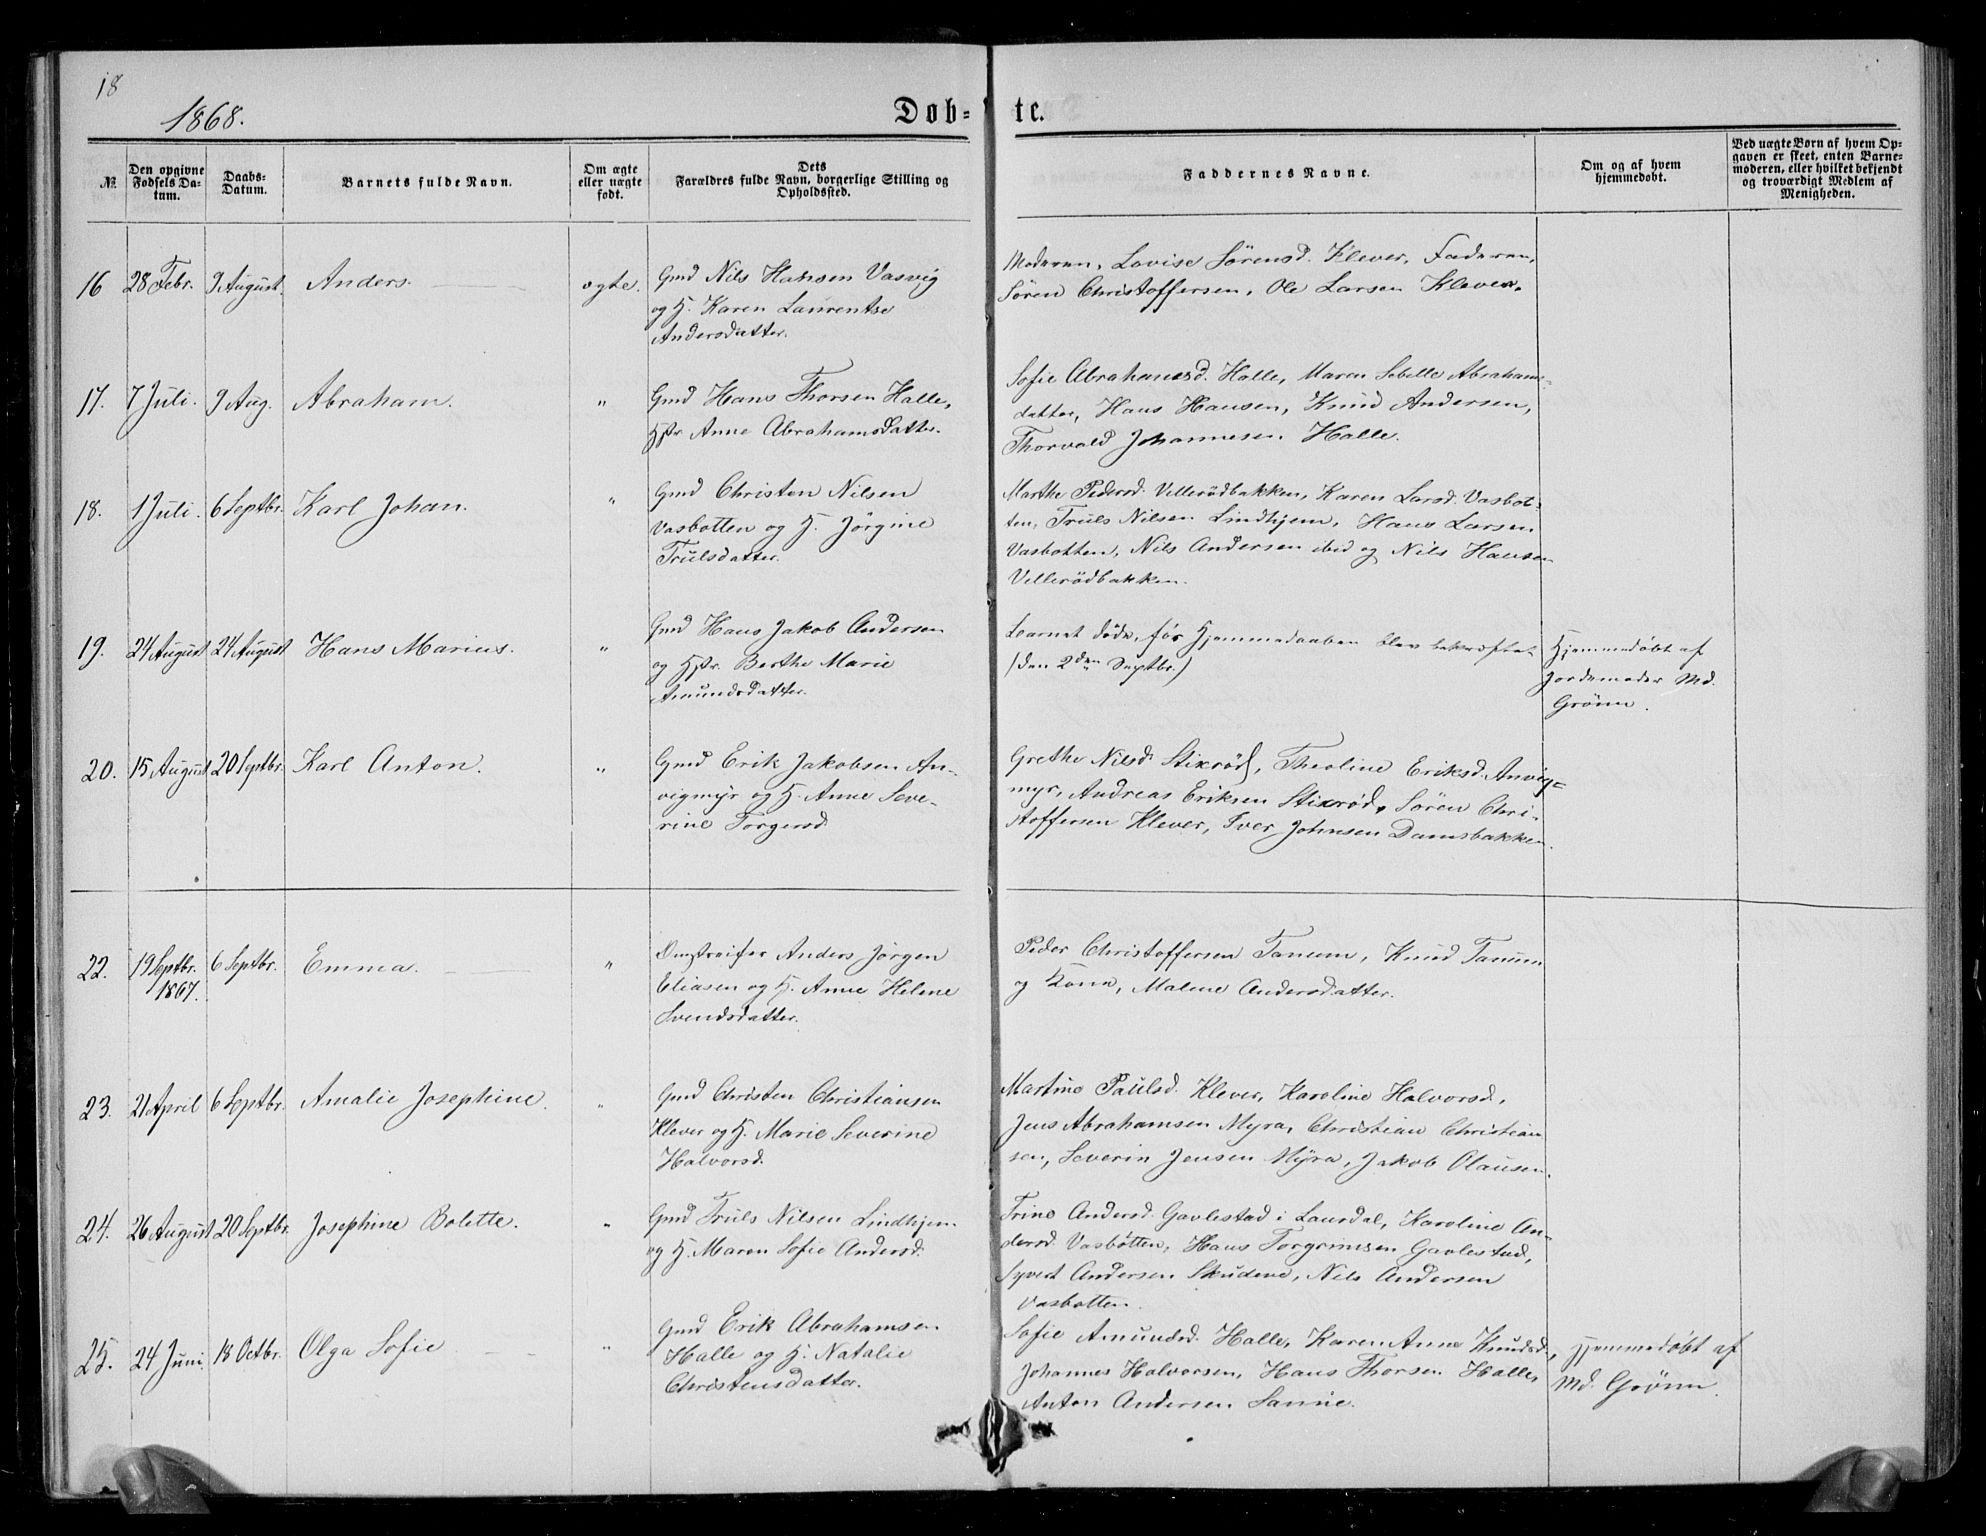 18
1868.
Døb-te.
№
Den opgivne Fødsels Da-tum.
Daabs-Datum.
Barnets fulde Navn.
Om ægte eller uægte født.
Dets Forældres fulde Navn, borgerlige Stilling og Opholdssted.
Faddernes Navne.
Om og af hvem hjemmedøbt.
Ved uægte Børn af hvem Op-gaven er skeet, enten Barne-moderen, eller hvilket bekjendt og troværdigt Medlem af Menigheden.
16 28 Febr. 9 August. Anders. ægte.
Gmd Nils Hansen Vasvig
og H. Karen Laurentse
Andersdatter.
Moderen, Lovise Sörensd. Klever, Faderen,
Sören Christoffersen, Ole Larsen Klever.
17. 7 Juli. 9 Aug. Abraham. "
Gmd Hans Thorsen Halle,
Hstr Anne Abrahamsdatter.
Sofie Abrahamsd. Halle, Maren Sebelle Abrahams-
datter, Hans Hansen, Knud Andersen,
Thorvald Johannesen Halle.
18. 1 Juli. 6 Septbr. Karl Johan. "
Gmd Christen Nilsen
Vasbotten og H. Jörgine
Trulsdatter.
Marthe Pedersd. Vellerödbakken, Karen Larsd. Vasbot-
ten, Truls Nilsen Lindhjem, Hans Larsen
Vasbotten, Nils Andersen ibid og Nils Hansen
Vellerödbakken.
19. 24 August 24 August Hans Marius. "
Gmd Hans Jakob Andersen
og Hstr. Berthe Marie
Amundsdatter.
Barnet döde, för Hjemmedaaben blev bekræftet
(den 2den Septbr.)
Hjemmedöbt af
Jordemoder Md.
Grönn.
20. 15 August 20 Septbr. Karl Anton. "
Gmd Erik Jakobsen An-
vigmyr og H. Anne Seve-
rine Torgersd.
Grethe Nilsd Stixröd, Theoline Eriksd. Anvig-
myr, Andreas Eriksen Stixröd, Sören Chri-
stoffersen Klever, Iver Johnsen Damsbakken.
22. 19 Septbr. 1867. 6 Septbr. Emma. "
Omstreifer Anders Jörgen
Eliasen og H. Anne Helene
Svendsdatter.
Peder Christoffersen Tanum, Knud Tanum
og Kone, Malene Andersdatter.
23. 21 April 6 Septbr. Amalie Josephine. "
Gmd Christen Christiansen
Klever og H. Marie Severine
Halvorsd.
Martine Paulsd. Klever, Karoline Halvorsd.,
Jens Abrahamsen Myra, Christian Christian-
sen, Severin Jensen Myra, Jakob Olausen.
24. 26 August 20 Septbr. Josephine Bolette. "
Gmd Truls Nilsen Lindhjem
og H. Maren Sofie Andersd.
Trine Andersd. Gavlestad i Laurdal, Karoline An-
dersd. Vasbotten, Hans Torgrimsen Gavlestad,
Syvert Andersen Skudene, Nils Andersen
Vasbotten.
25. 24 Juni. 18 Octbr. Olga Sofie "
Gmd Erik Abrahamsen
Halle og H. Natalie
Christensdatter.
Sofie Amundsd. Halle, Karen Anne Knudsd.,
Johannes Halvorsen, Hans Thorsen Halle,
Anton Andersen Sanne.
Hjemmedöbt af
Md. Grönn.